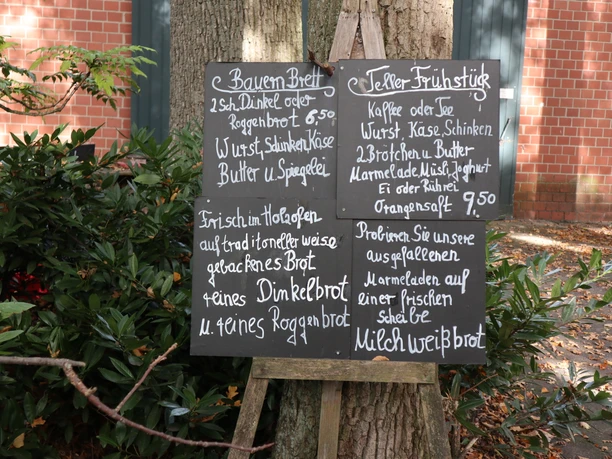 Bauern Brett
2 Sch. Dinkel oder
Roggenbrot 6,50
Wurst, Schinken, Käse
Butter u. Spiegelei
Teller Frühstück
Kaffee oder Tee
Wurst, Käse, Schinken
2 Brötchen u. Butter
Marmelade Müsli, Joghurt
Ei oder Rührei
Orangensaft 9,50
Frisch im Holzofen
auf traditoneller weise
gebackenes Brot
reines Dinkelbrot
u. reines Roggenbrot
Probieren Sie unsere
ausgefallenen
Marmeladen auf
einer frischen
Scheibe
Milchweißbrot